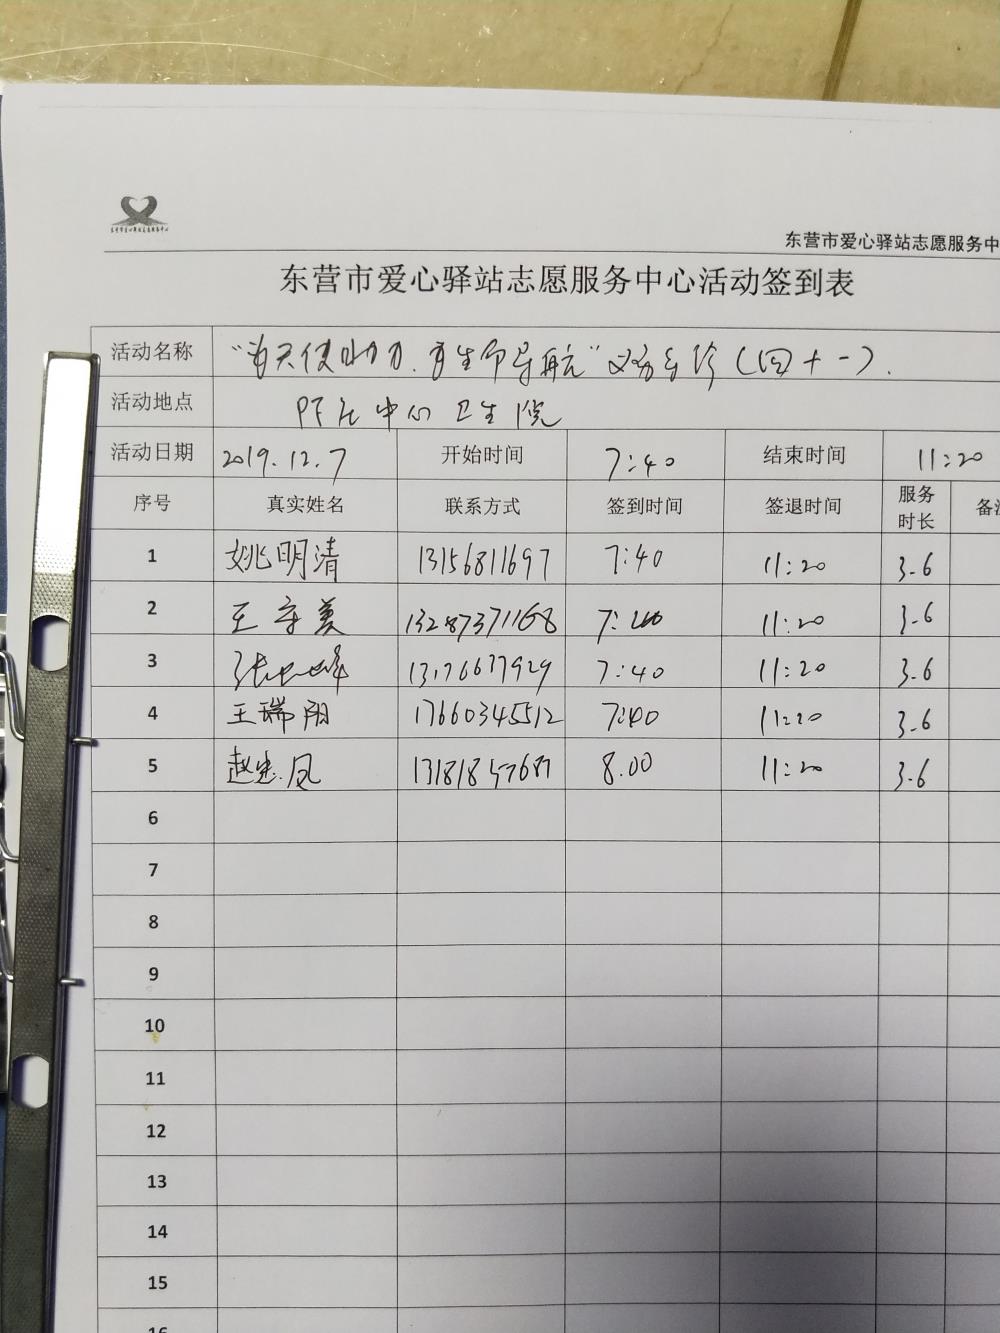 东营市爱心驿站志愿服务中
东营市爱心驿站志愿服务中心活动签到表
活动名称 “为天使助力.为生命导航”义务导诊(四十一).
活动地点 中心卫生院
活动日期 2019.12.7 开始时间 7:40 结束时间 11:20
序号 真实姓名 联系方式 签到时间 签退时间 服务时长 备注
1 姚明清 13156811697 7:40 11:20 3.6
2 王守美 13287371168 7:40 11:20 3.6
3 张 13176677929 7:40 11:20 3.6
4 王瑞阳 17660345512 7:40 11:20 3.6
5 赵忠凤 13181857687 8.00 11:20 3.6
6
7
8
9
10
11
12
13
14
15
16